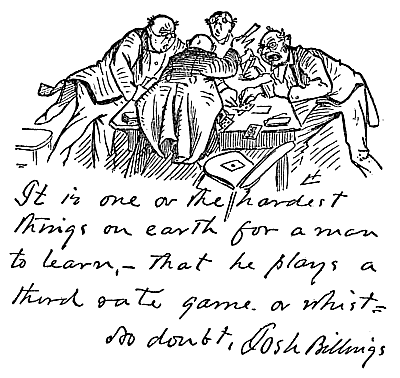 It is one ov the hardest
things on earth for a man
to learn,– that he plays a
third rate game ov whist=
No doubt, Josh Billings